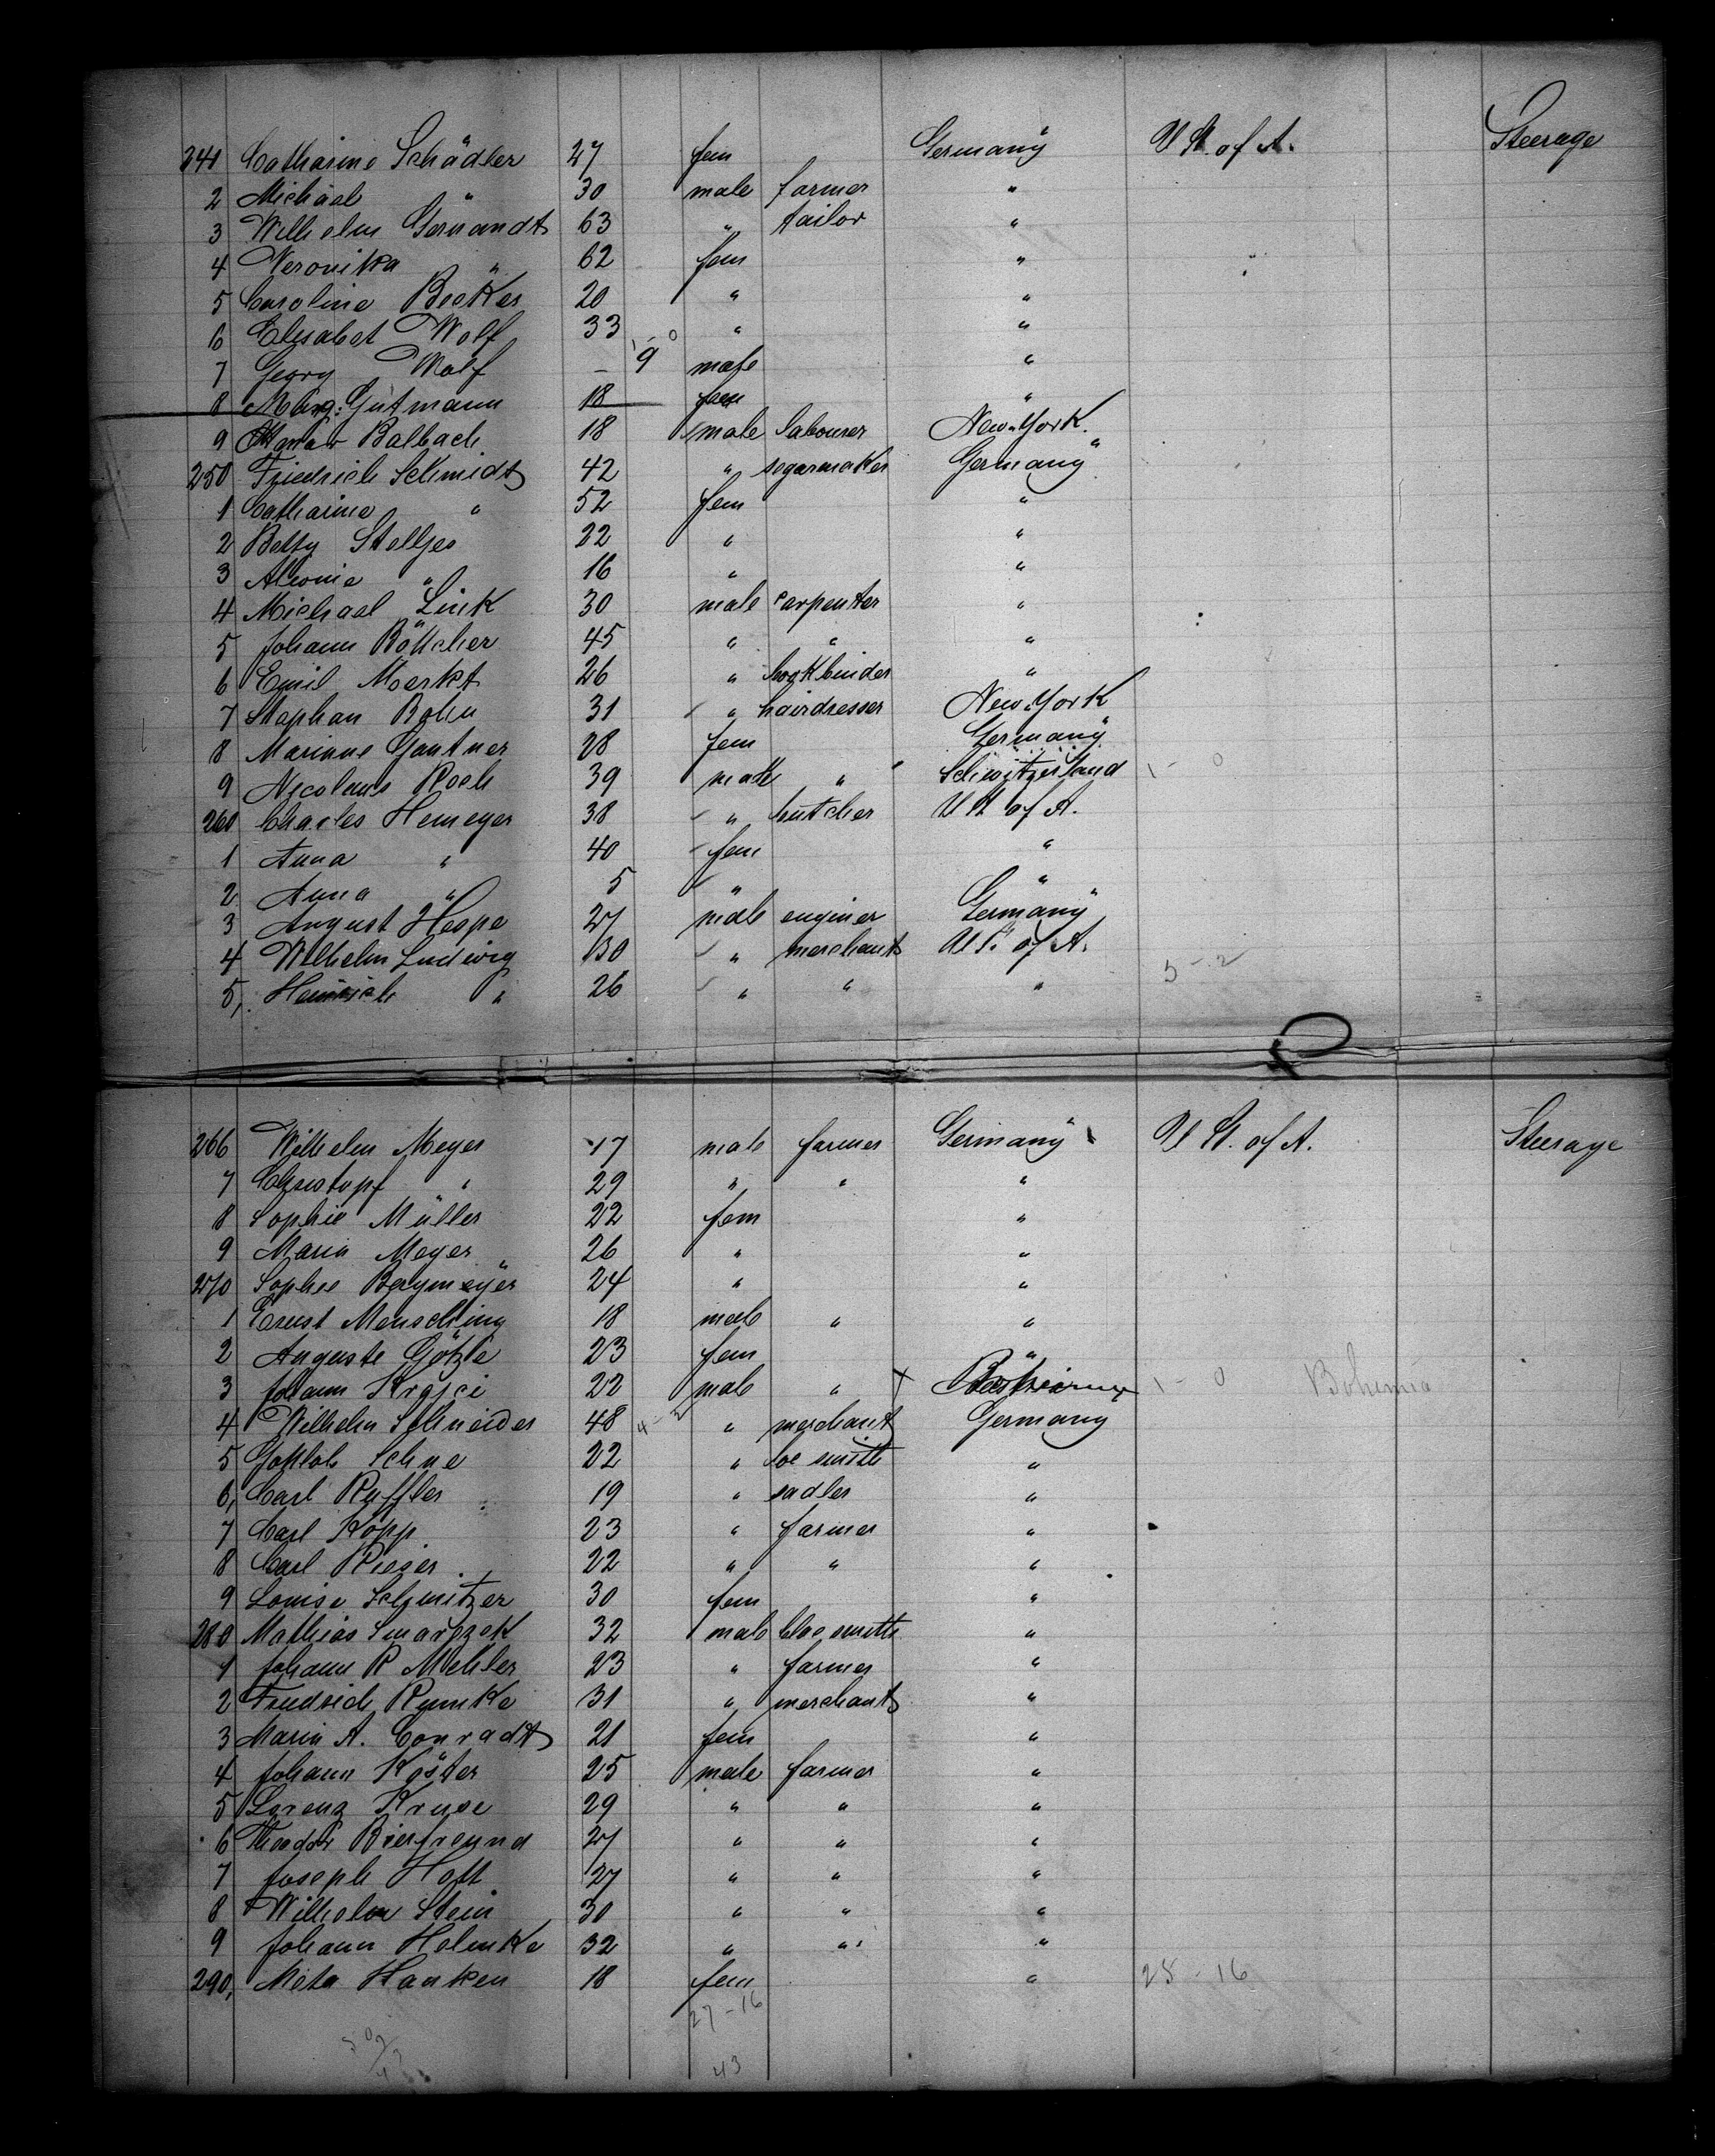 241 Catharine Schädler 27 fem Germany U St. of A. Steerage
2 Michael " 30 male farmer "
3 Wilhelm Gernandt 63 " tailor "
4 Veronika " 62 fem "
5 Caroline Becker 20 " "
6 Elisabet Wolf 33 " "
7 Georg Wolf – 9 male "
8 Marg: Gutmann 18 fem "
9 Balbach 18 male labourer New-York.
250 Friedrich Schmidt 42 " segarmaker Germany
1 Catharine " 52 fem "
2 Betty Stelljes 22 " "
3 " 16 " "
4 Michael Link 30 male carpenter "
5 Johann Böttcher 45 " " "
6 Emil Moerkt 26 " bookbinder "
7 Stephan Bohn 31 " hairdresser New-York
8 Marinne Gantner 28 fem Germany
9 Nicolaus Koch 39 male " Schwitzerland 1 - 0
260 Charles Hemeyer 38 " butcher U St of A.
1 Anna " 40 fem "
2 Anna " 5 " "
3 August Hespe 27 male enginer Germany
4 Wilhelm Ludwig 30 " merchant U St. of A.
5, Heinrich " 26 " " " 5 - 2
266 Wilhelm Meyer 17 male farmer Germany U St. of A. Steerage
7 Christopf " 29 " " "
8 Sophie Müller 22 fem "
9 Maria Meyer 26 " "
270 Sophie Bergmeyer 24 " "
1 Ernst Mensching 18 male " "
2 Auguste Götze 23 fem "
3 Johann Krajci 22 male " x 1 - 0 Bohemia
4 Wilhelm Schneider 48 4 - 2 " merchant Germany
5 Gottlob Schue 22 " smith "
6, Carl Ruffler 19 " sadler "
7 Carl Kopp 23 " farmer "
8 Carl Rieger 22 " " "
9 Louise Schmitzer 30 fem "
280 Mathias Smarzek 32 male smith "
1 Johann R Mehler 23 " farmer "
2 Friedrich Rumke 31 " merchant "
3 Maria A. Conradt 21 fem "
4 Johann Köster 25 male farmer "
5 Lorenz Kruse 29 " " "
6 Theodor Bierfreund 27 " " "
7 Joseph Hoft 27 " " "
8 Wilhelm Stein 30 " " "
9 Johann Helmke 32 " " "
290, Meta Hanken 18 fem " 25 - 16
27 - 16
43